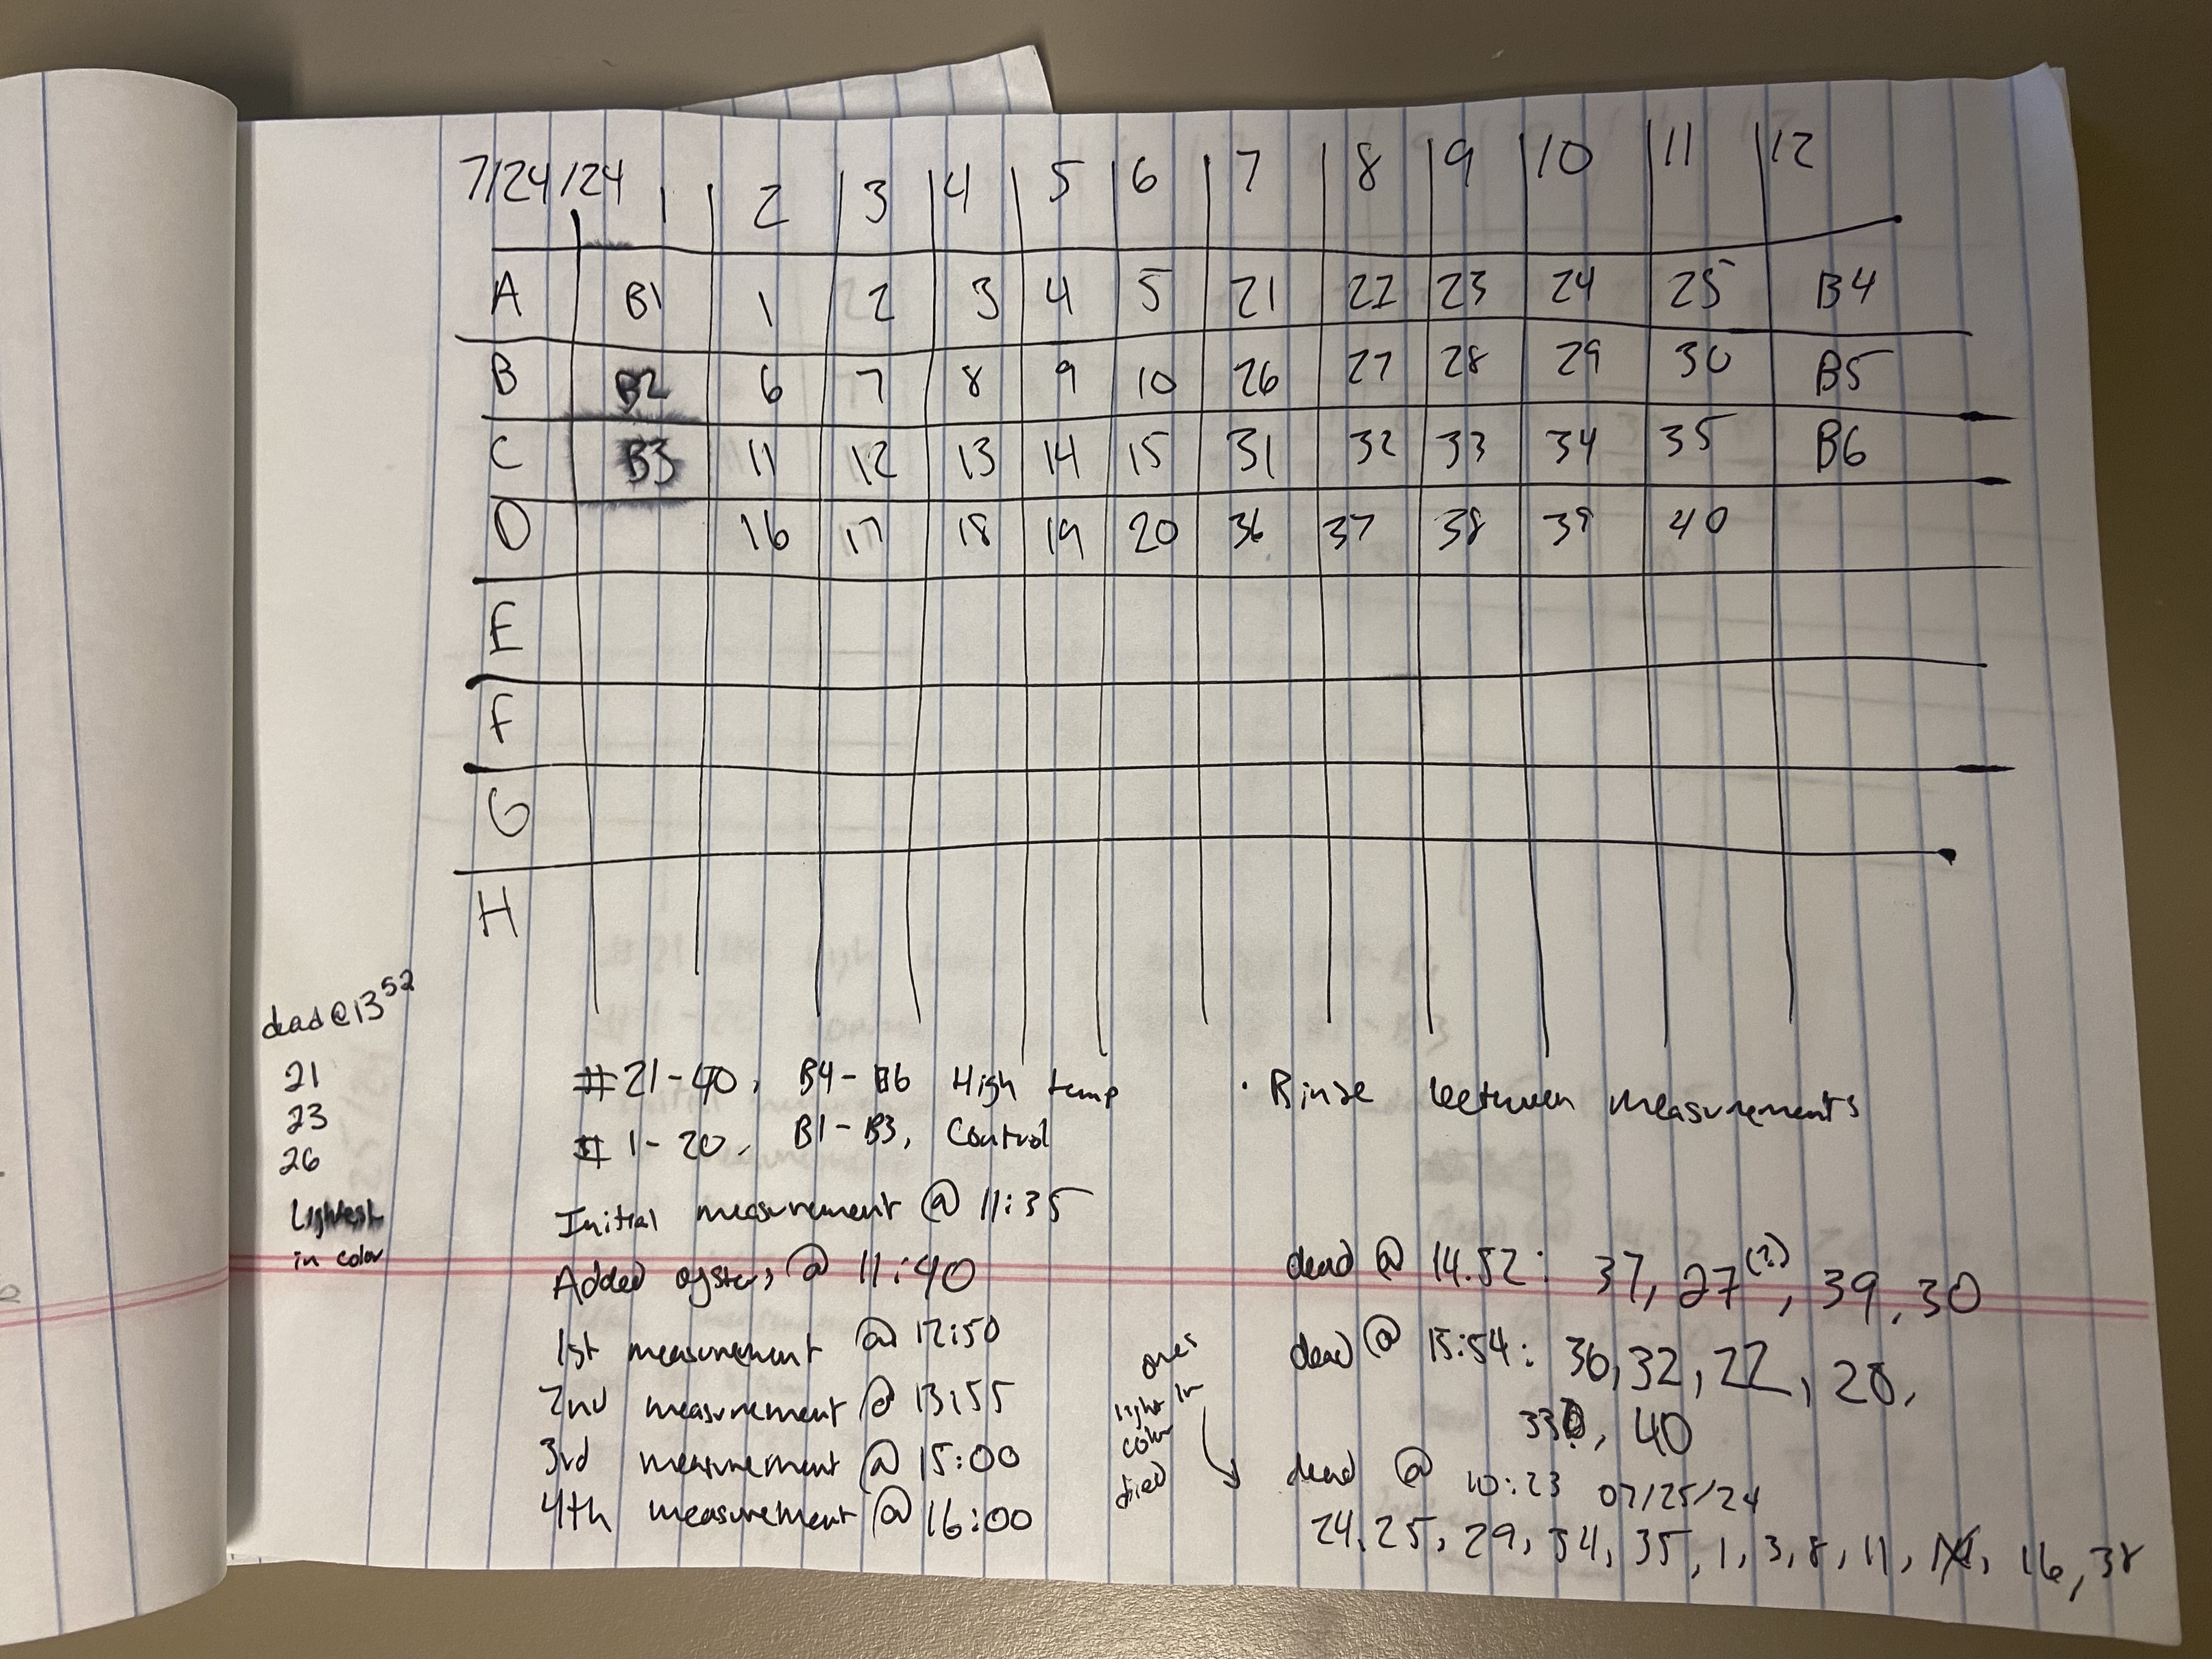 7/24/24 1 2 3 4 5 6 7 8 9 10 11 12
A B1 1 2 3 4 5 21 22 23 24 25 B4
B B2 6 7 8 9 10 26 27 28 29 30 B5
C B3 11 12 13 14 15 31 32 33 34 35 B6
D 16 17 18 19 20 36 37 38 39 40
E
F
G
H
dead @ 13 52
21
23
26
Lightest
in color
#21-40, B4-B6 High temp
# 1-20, B1-B3, Control
Initial measurement @ 11:35
Added oysters @ 11:40
1st measurement @ 12:50
2nd measurement @ 13:55
3rd measurement @ 15:00
4th measurement @ 16:00
• Rinse between measurements
dead @ 14.52: 37, 27(?), 39, 30
dead @ 15:54: 36, 32, 22, 28,
33, 40
ones
light in
color
died
dead @ 10:23 07/25/24
24, 25, 29, 34, 35, 1, 3, 8, 11, 16, 38